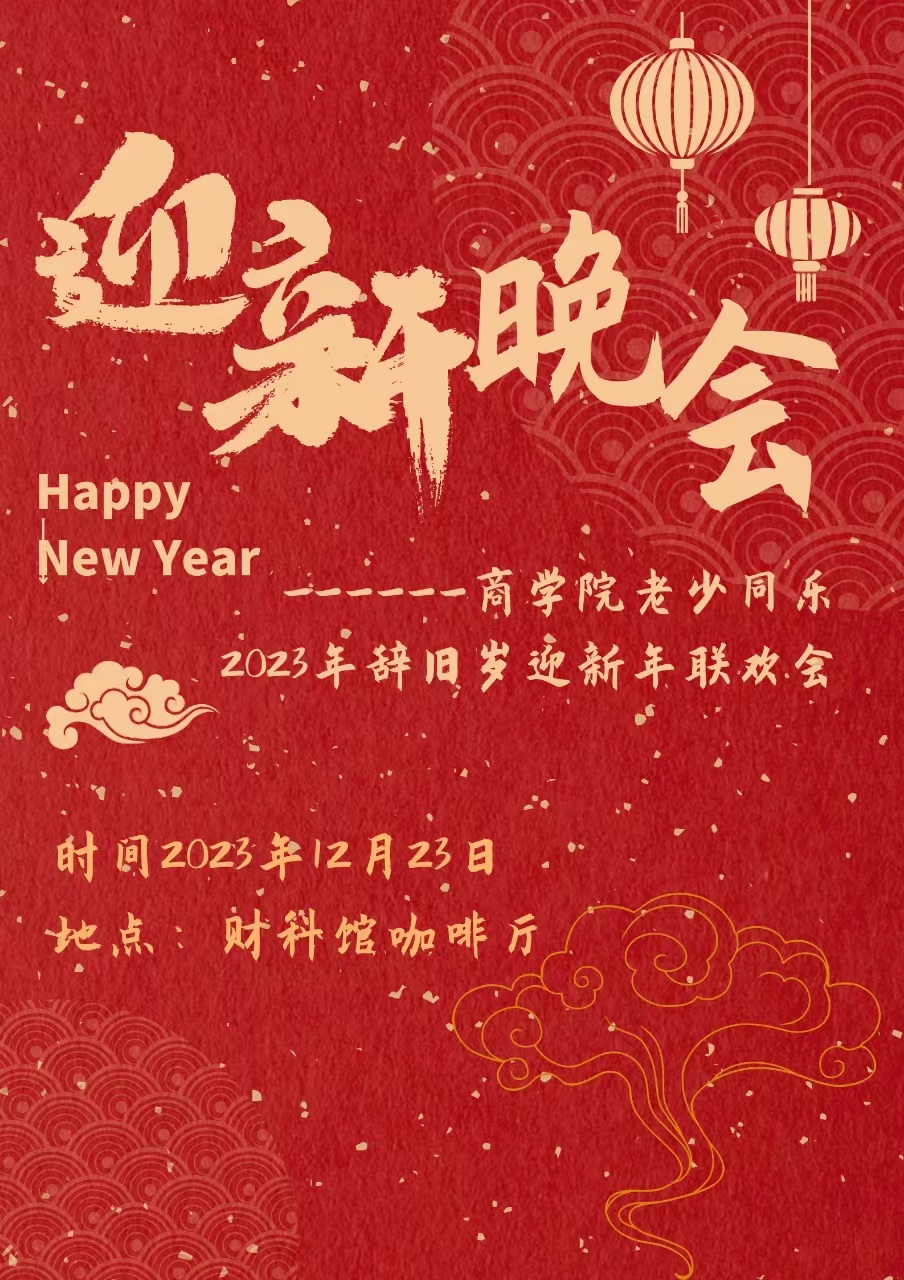 迎新晚会
Happy
New Year
——————商学院老少同乐
2023年辞旧岁迎新年联欢会
时间2023年12月23日
地点：财科馆咖啡厅